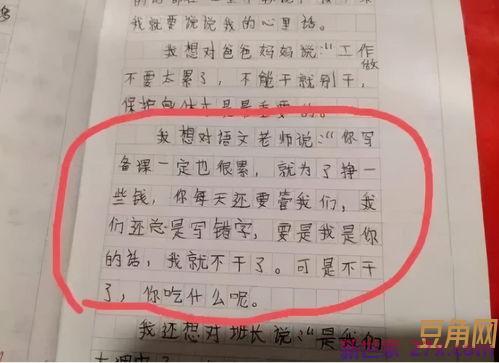 我就要说说我的心里话。
我想对爸爸妈妈说:“工作
不要太累了,不能干就别干,做
保护身体才是最重要的。
我想对语文老师说:“你写
备课一定也很累,就为了挣一
些钱,你每天还要管我们,我
们还总是写错字,要是我是你
的话,我就不干了。可是不干
了,你吃什么呢。
我还想对班长说:“是我们
豆角网